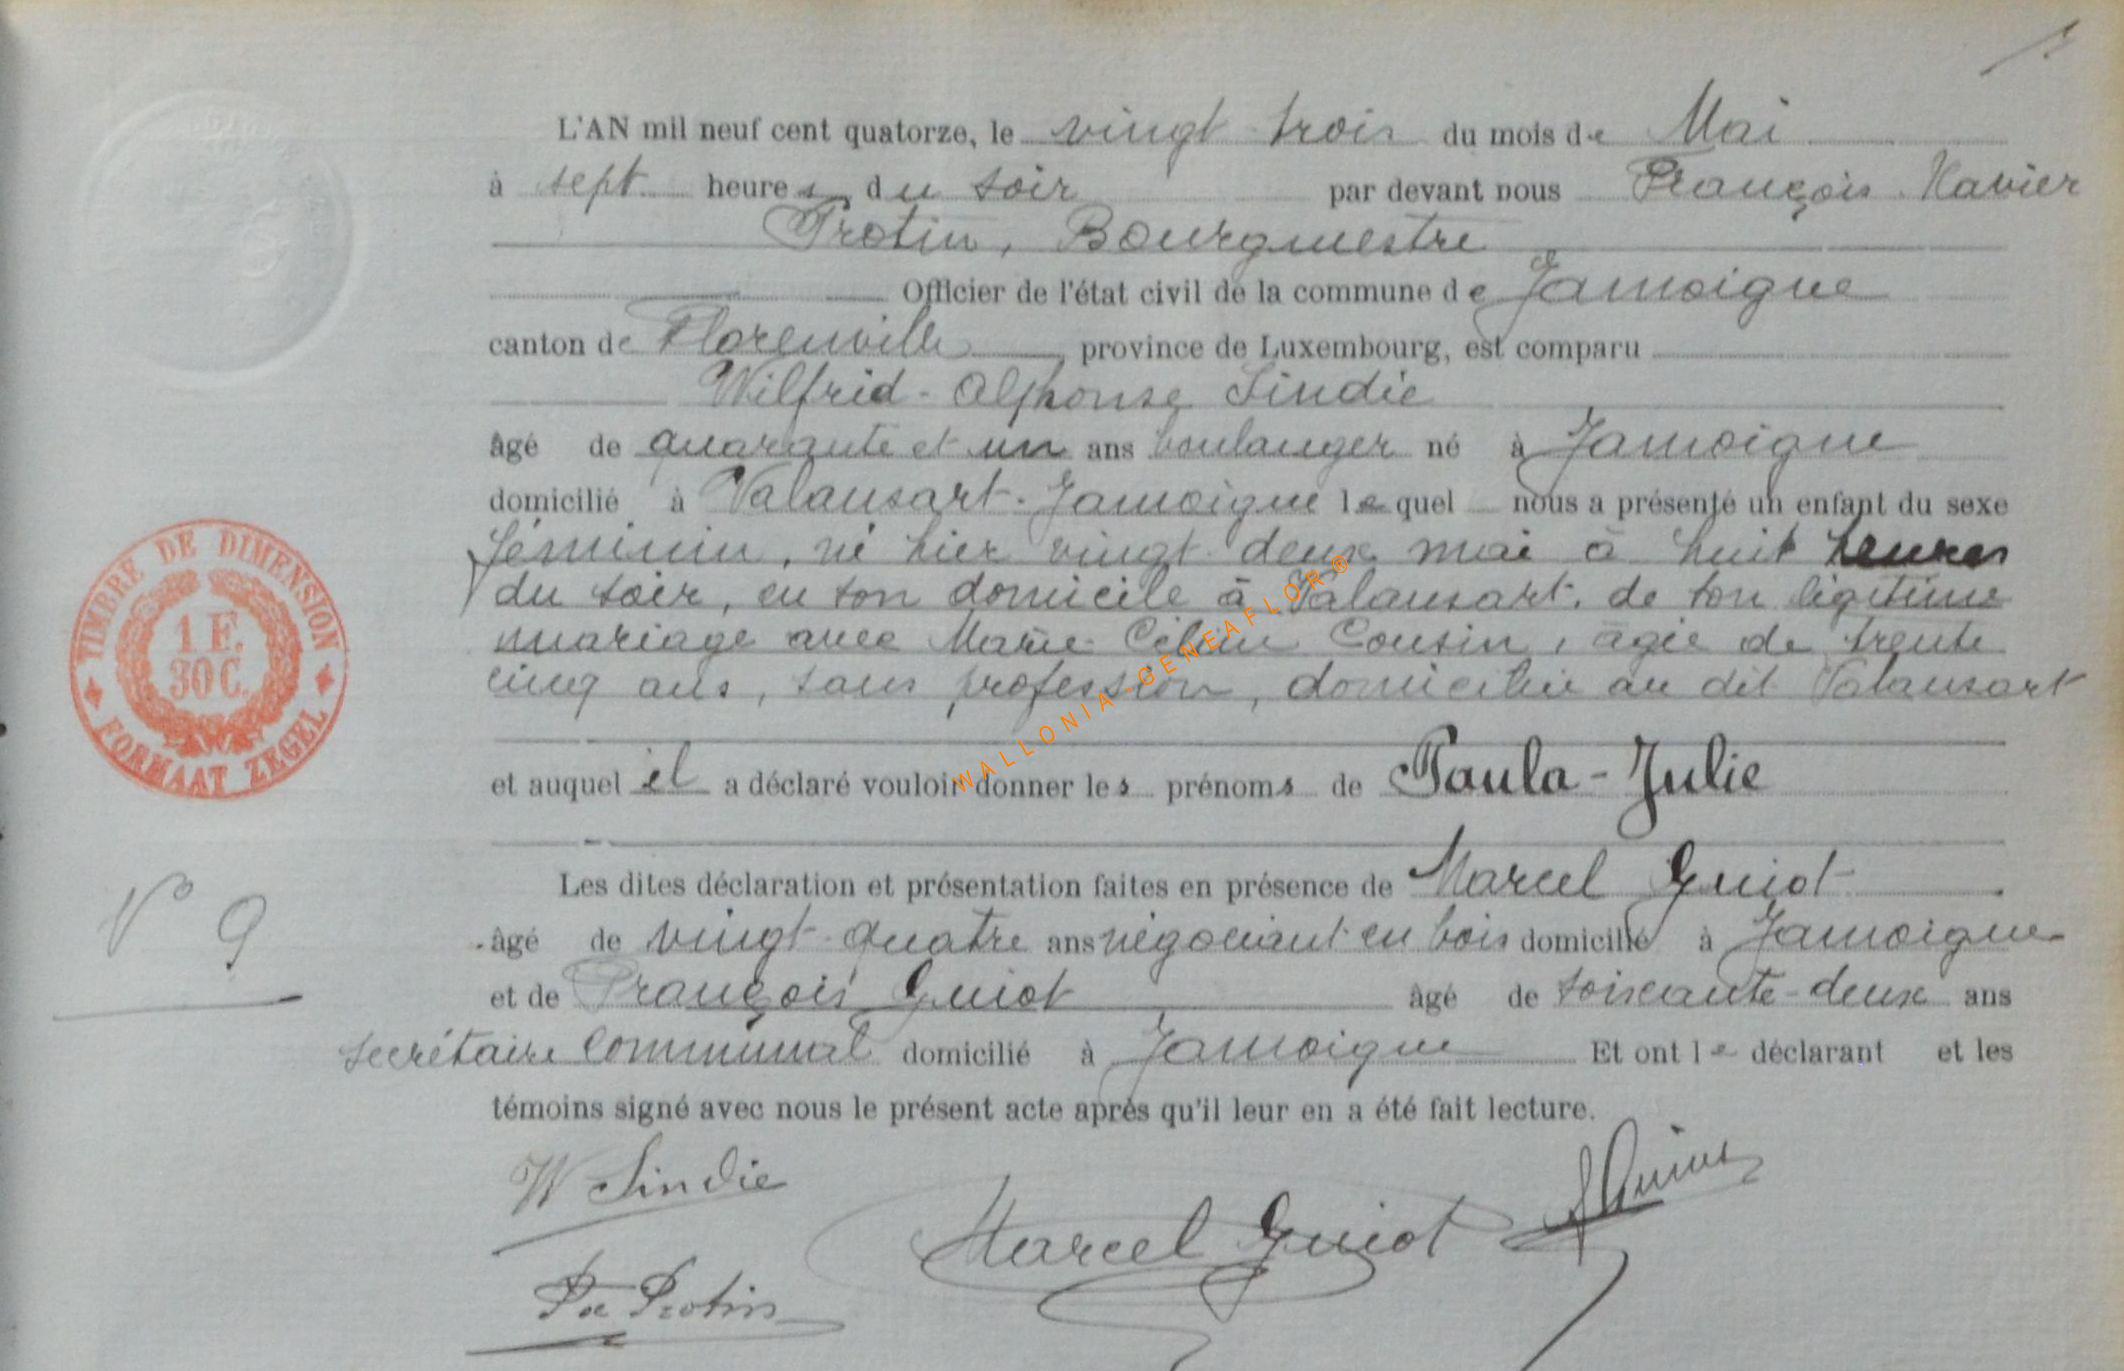 L'AN mil neuf cent quatorze, le vingt trois du mois de Mai
à sept heures du soir par devant nous François Xavier
Protin, Bourgmestre
Officier de l'état civil de la commune de Jamoigne
canton de Florenville, province de Luxembourg, est comparu
Wilfrid-Alphonse Sindic
âgé de quarante et un ans boulanger né à Jamoigne
domicilié à Valansart-Jamoigne lequel nous a présenté un enfant du sexe
féminin, né hier vingt-deux mai à huit heures
du soir, en son domicile à Valansart, de son légitime
mariage avec Marie-Céline Cousin, âgée de trente
cinq ans, sans profession, domiciliée au dit Valansart
et auquel il a déclaré vouloir donner les prénoms de Paula-Julie
Les dites déclaration et présentation faites en présence de Marcel Guiot
âgé de vingt-quatre ans négociant en bois domicilié à Jamoigne
et de François Guiot âgé de soixante-deux ans
secrétaire communal domicilié à Jamoigne Et ont le déclarant et les
témoins signé avec nous le présent acte après qu'il leur en a été fait lecture.
W Sindic
Marcel Guiot
Protin
N° 9
TIMBRE DE DIMENSION
1 F.
30 C.
FORMAAT ZEGEL
WALLONIA-GENEAFLOR®